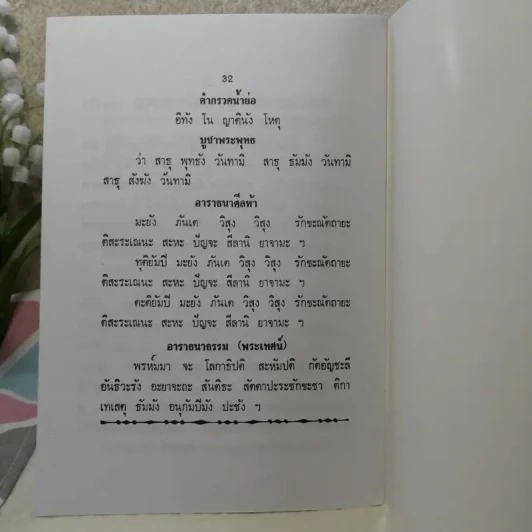 32
คำกรวดน้ำย่อ
อิทัง โน ญาตินัง โหตุ
บูชาพระพุทธ
ว่า สาธุ พุทธัง วันทามิ สาธุ ธัมมัง วันทามิ
สาธุ สังฆัง วันทามิ
อาราธนาศีลห้า
มะยัง ภันเต วิสุง วิสุง รักขะณัตถายะ
ติสะระเณนะ สะหะ ปัญจะ สีลานิ ยาจามะ ฯ
ทุติยัมปี มะยัง ภันเต วิสุง วิสุง รักขะณัตถายะ
ติสะระเณนะ สะหะ ปัญจะ สีลานิ ยาจามะ ฯ
ตะติยัมปี มะยัง ภันเต วิสุง วิสุง รักขะณัตถายะ
ติสะระเณนะ สะหะ ปัญจะ สีลานิ ยาจามะ ฯ
อาราธนาธรรม (พระเทศน์)
พรหฺมมา จะ โลกาธิปติ สะหัมปติ กัตอัญชะลี
อันธิวะรัง อะยาจะถะ สันติธะ สัตตาปะระชักขะชา ติกา
เทเสตุ ธัมมัง อนุกัมปีมัง ปะชัง ฯ